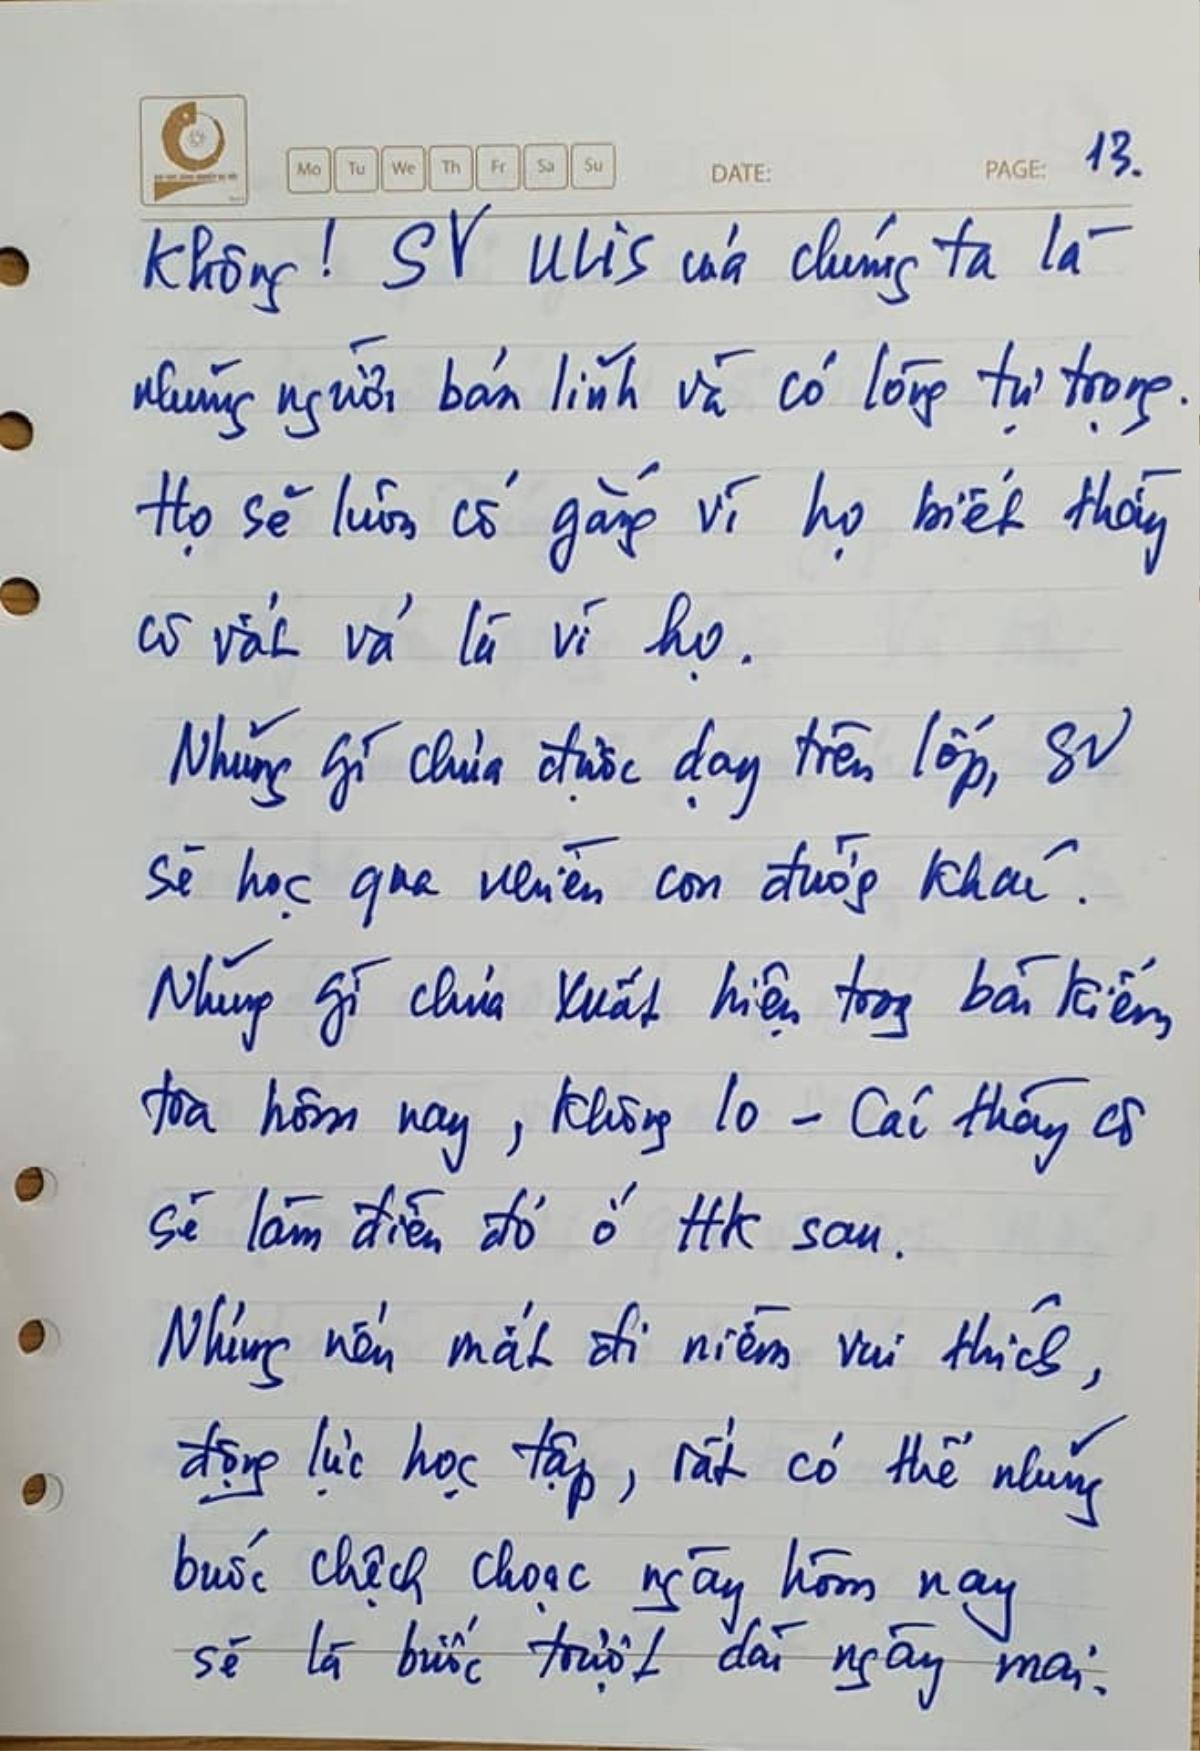 Mo Tu We Th Fr Sa Su DATE: PAGE: 13.
Không! SV ULIS của chúng ta là
những người bản lĩnh và có lòng tự trọng.
Họ sẽ luôn cố gắng vì họ biết thầy
cô vất vả là vì họ.
Những gì chưa được dạy trên lớp, SV
sẽ học qua nhiều con đường khác.
Những gì chưa xuất hiện trong bài kiểm
tra hôm nay, không lo - Các thầy cô
sẽ làm điều đó ở HK sau.
Nhưng nếu mất đi niềm vui thích,
động lực học tập, rất có thể những
bước chệch choạc ngày hôm nay
sẽ là bước trượt dài ngày mai.